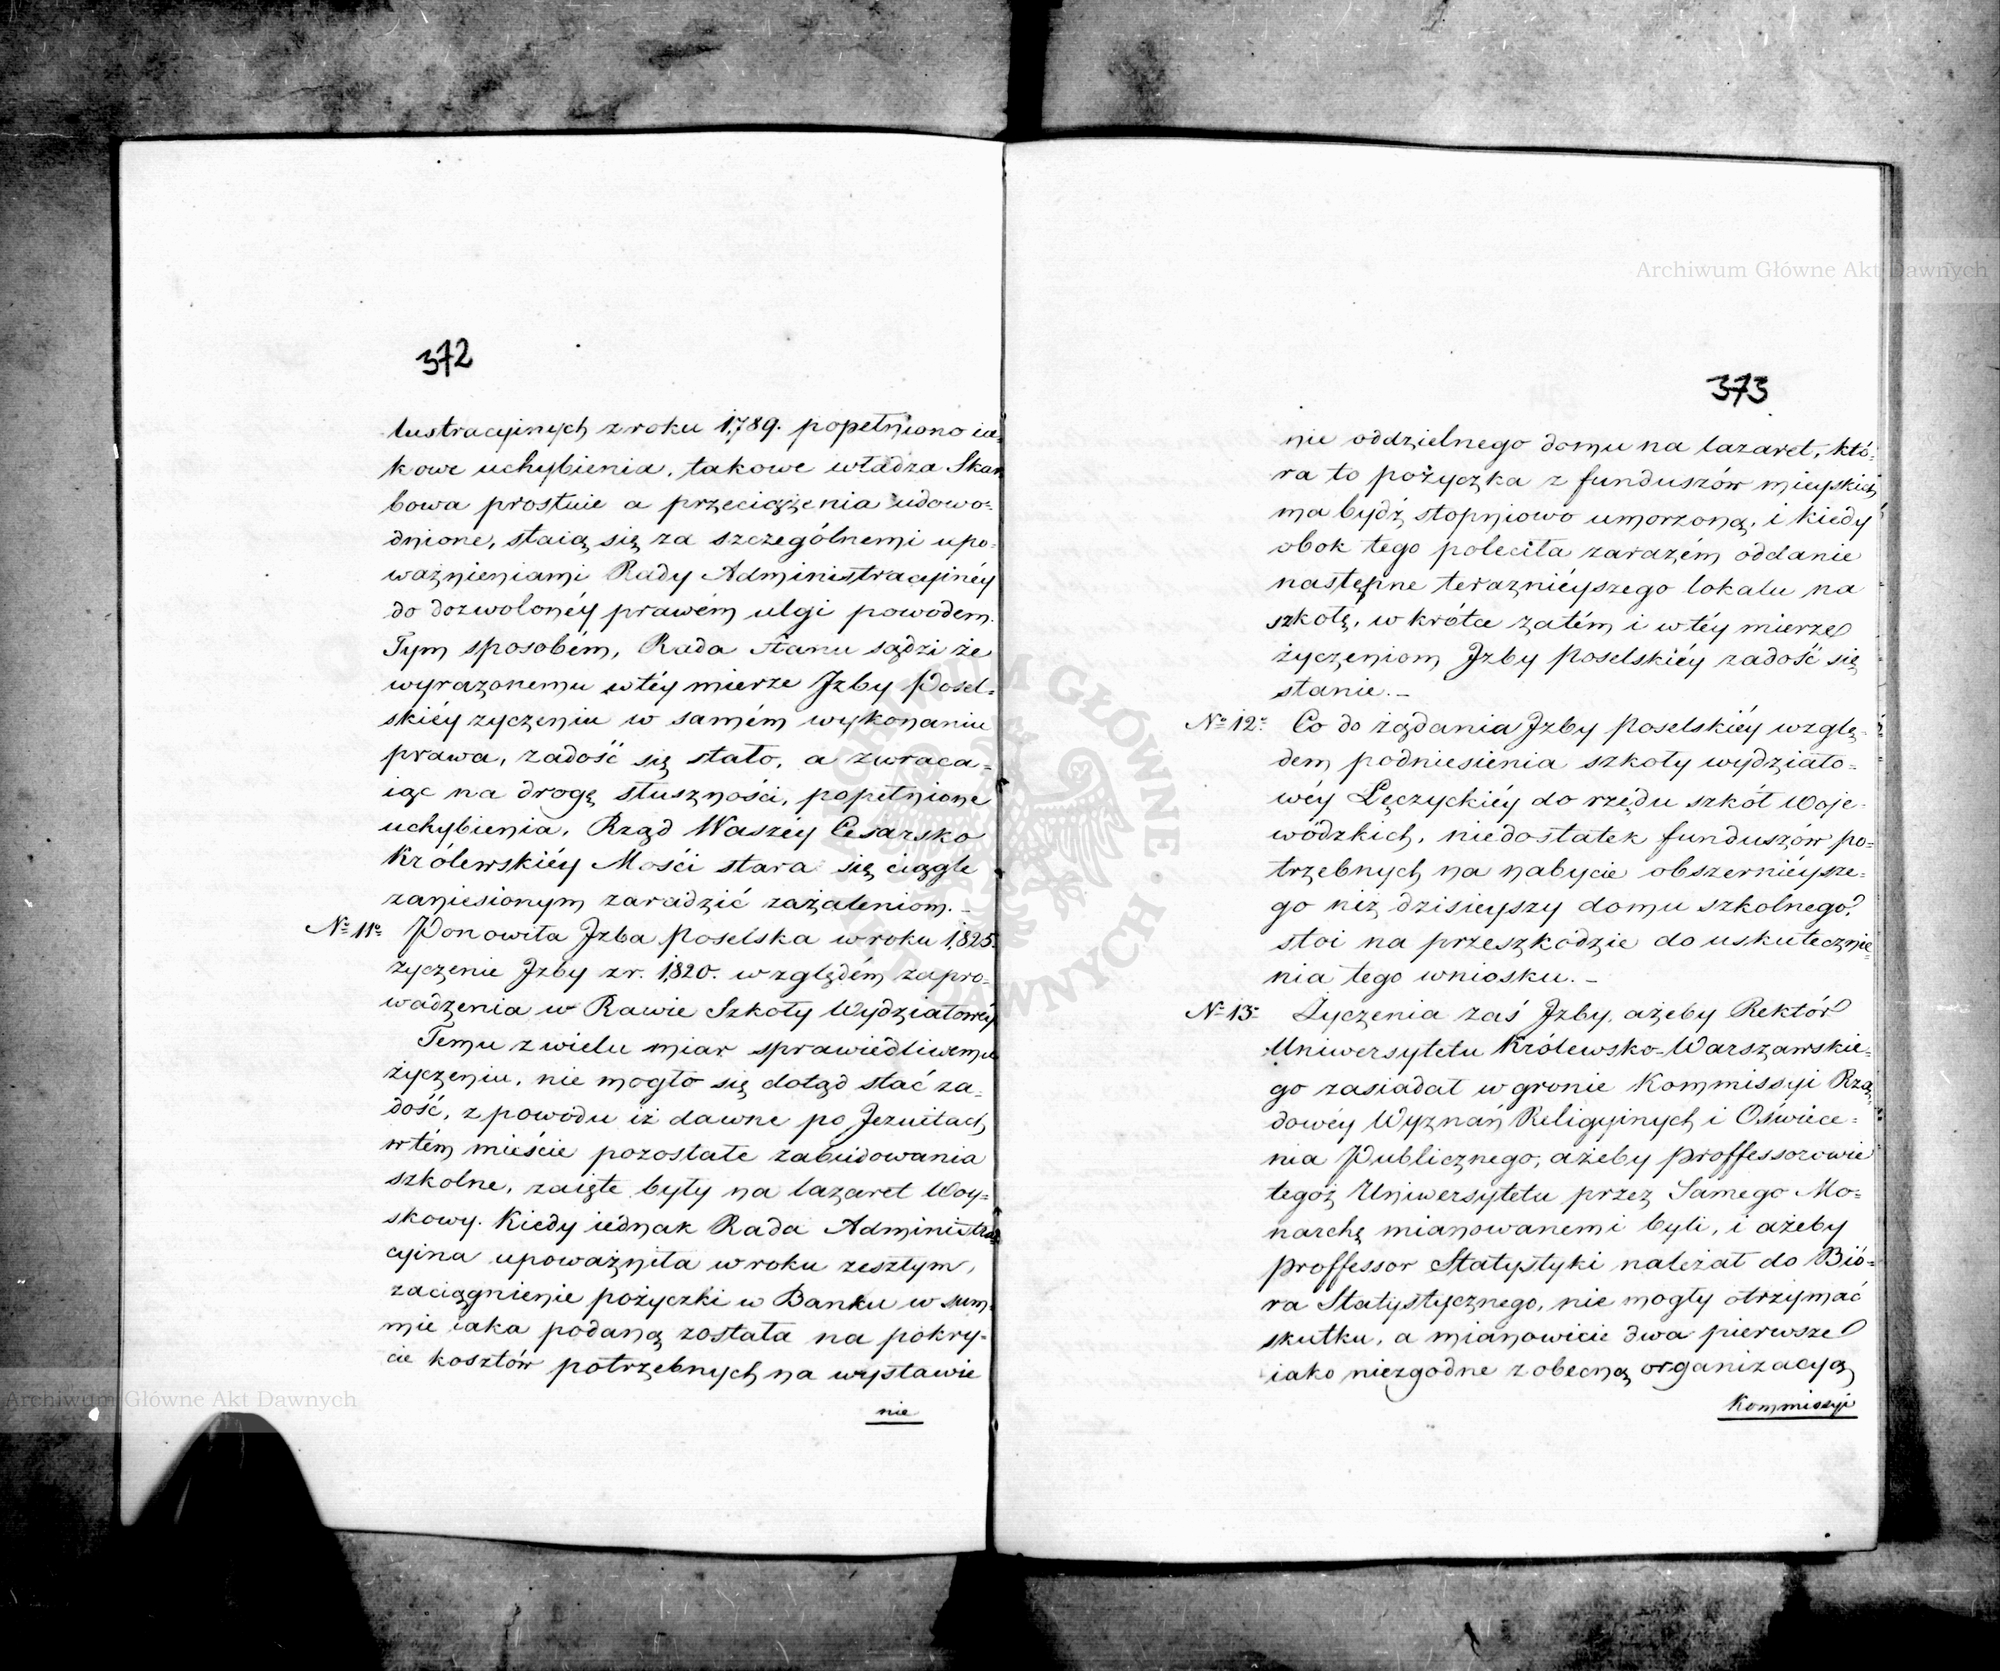 372
lustracyinych z roku 1,789. popełniono ia-
kowe uchybienia, takowe władza Skar
bowa prostuie a przeciążenia udowo-
dnione, staią się za szczególnemi upo-
ważnieniami Rady Administracyinéy
do dozwolonéy prawém ulgi powodem.
Tym sposobém, Rada Stanu sądzi że
wyrażonemu w téy mierze Jzby Posel-
skiéy życzeniu w samém wykonaniu
prawa, zadość się stało, a zwraca-
iąc na drogę słuszności, popełnione
uchybienia, Rząd Waszéy Cesarsko
Królewskiéy Mości stara się ciągle
zaniesionym zaradzić zażaleniom. _
No 11o Ponowiła Jzba Poselska w roku 1,825.
życzenie Jzby z r. 1,820. względém zapro-
wadzenia w Rawie Szkoły Wydziałowéy
Temu z wielu miar sprawiedliwemu
życzeniu, nie mogło się dotąd stać za-
dość, z powodu iż dawne po Jezuitach
w tém mieście pozostałe zabudowania
szkolne, zaięte były na lazaret Woy-
skowy. Kiedy iednak Rada Administra-
cyina upoważniła w roku zeszłym,
zaciągnienie pożyczki w Banku w sum-
mie iaka podaną została na pokry-
cie kosztów potrzebnych na wystawie
nie
373
nie oddzielnego domu na lazaret, któ-
ra to pożyczka z funduszów mieyskich
ma bydź stopniowo umorzoną, i kiedy
obok tego poleciła zarazém oddanie
następne teraznieyszego lokalu na
szkołę, w krótce zatém i w téy mierze
życzeniom Jzby Poselskiéy zadość się
stanie. _
No 12o Co do żądania Jzby Poselskiéy wzglę-
dem podniesienia szkoły wydziało-
wéy Łęczyckiéy do rzędu szkół Woje-
wódzkich, niedostatek funduszów po-
trzebnych na nabycie obszerniéysze-
go niż dzisieyszy domu szkolnego,
stoi na przeszkodzie do uskutecznie-
nia tego wniosku. _
No 13o Życzenia zaś Jzby, ażeby Rektór
Uniwersytetu Królewsko-Warszawskie-
go zasiadał w gronie Kommissyi Rzą-
dowéy Wyznań Religyinych i Oświece-
nia Publicznego, ażeby Proffessorowie
tegoż Uniwersytetu przez Samego Mo-
narchę mianowanemi byli, i ażeby
Proffessor Statystyki należał do Bió-
ra Statystycznego, nie mogły otrzymać
skutku, a mianowicie dwa pierwsze
iako niezgodne z obecną organizacyą
Kommissyi
Archiwum Główne Akt Dawnych
Archiwum Główne Akt Dawnych
ARCHIWUM GŁÓWNE AKT DAWNYCH